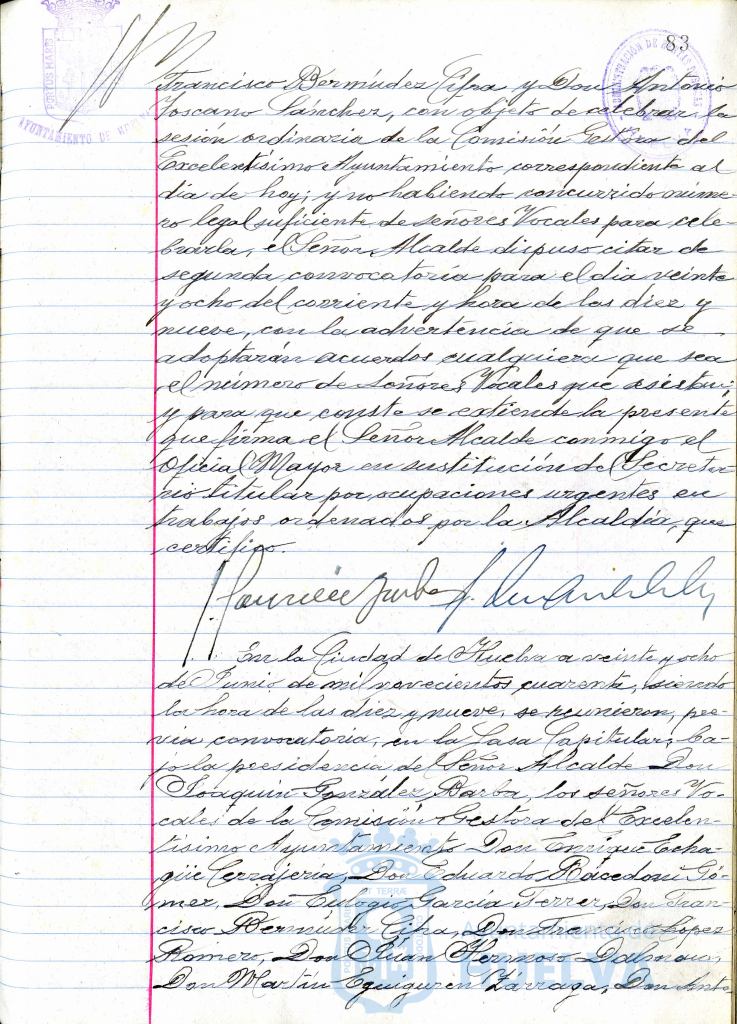 83
PORTUS MARIS
AYUNTAMIENTO DE
Francisco Bermúdez Cifra y Don Antonio
Toscano Sánchez, con objeto de celebrar la
sesión ordinaria de la Comisión Gestora del
Excelentísimo Ayuntamiento correspondiente al
día de hoy; y no habiendo concurrido núme-
ro legal suficiente de señores Vocales para cele-
brarla, el Señor Alcalde dispuso citar de
segunda convocatoria para el día veinte
y ocho del corriente y hora de las diez y
nueve, con la advertencia de que se
adoptarán acuerdos cualquiera que sea
el número de Señores Vocales que asistan;
y para que conste se extiende la presente
que firma el Señor Alcalde conmigo el
Oficial Mayor en sustitución del Secreta-
rio titular por ocupaciones urgentes en
trabajos ordenados por la Alcaldía, que
certifico.
En la Ciudad de Huelva a veinte y ocho
de Junio de mil novecientos cuarenta, siendo
la hora de las diez y nueve, se reunieron, pre-
via convocatoria, en la Casa Capitular, ba-
jo la presidencia del Señor Alcalde Don
Joaquín González Barba, los señores Vo-
cales de la Comisión Gestora del Excelen-
tísimo Ayuntamiento Don Enrique Echa-
güe Cerrajería, Don Eduardo Racedoni Gó-
mez, Don Eulogio García Ferrer, Don Fran-
cisco Bermúdez Cifra, Don Francisco López
Romero, Don Juan Hermoso Dalmau,
Don Martín Eguiguren Zárraga, Don Anto-
Ayuntamiento de
HUELVA